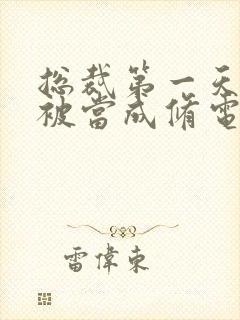 總裁第一天
被當成修電
雷偉東